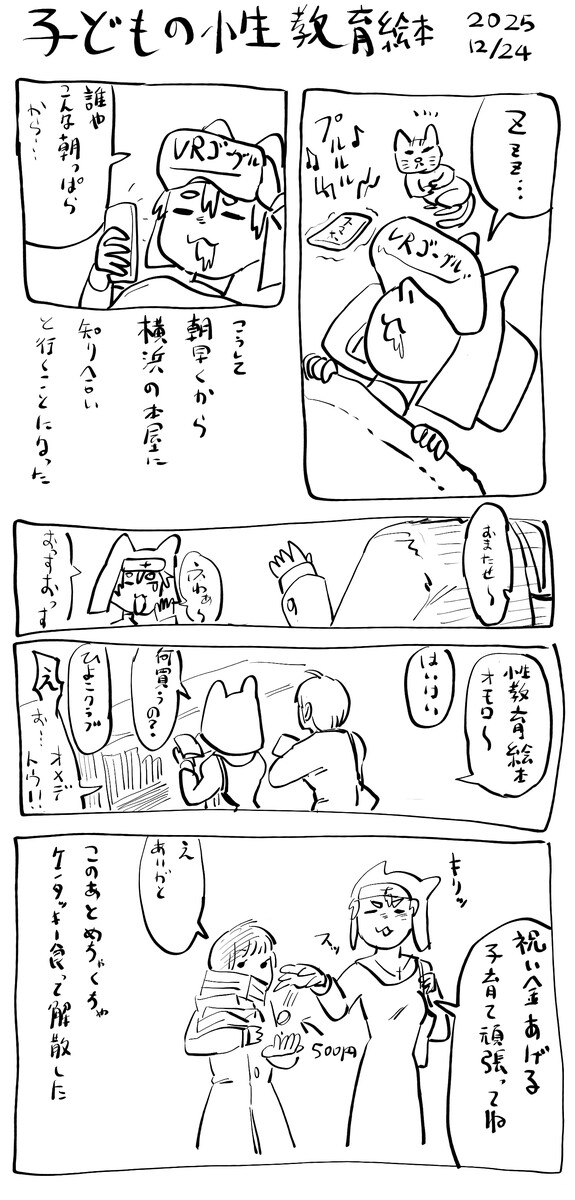 子どもの性教育絵本
2025
12/24
ZZZ…
プルル♪
ルルル
スマホ
VRゴーグル
誰や
こんな朝っぱら
から…
VRゴーグル
こうして
朝早くから
横浜の本屋に
知り合い
と行くことになった
おまたせ〜
ふわぁ〜
おっすおっす
性教育絵本
オモロ〜
はいはい
何買うの?
ひよこクラブ
え
お…オメデ
トウ!!
キリッ
祝い金あげる
子育て頑張ってね
スッ
500円
え
ありがと
このあとめちゃくちゃ
ケンタッキー食って解散した